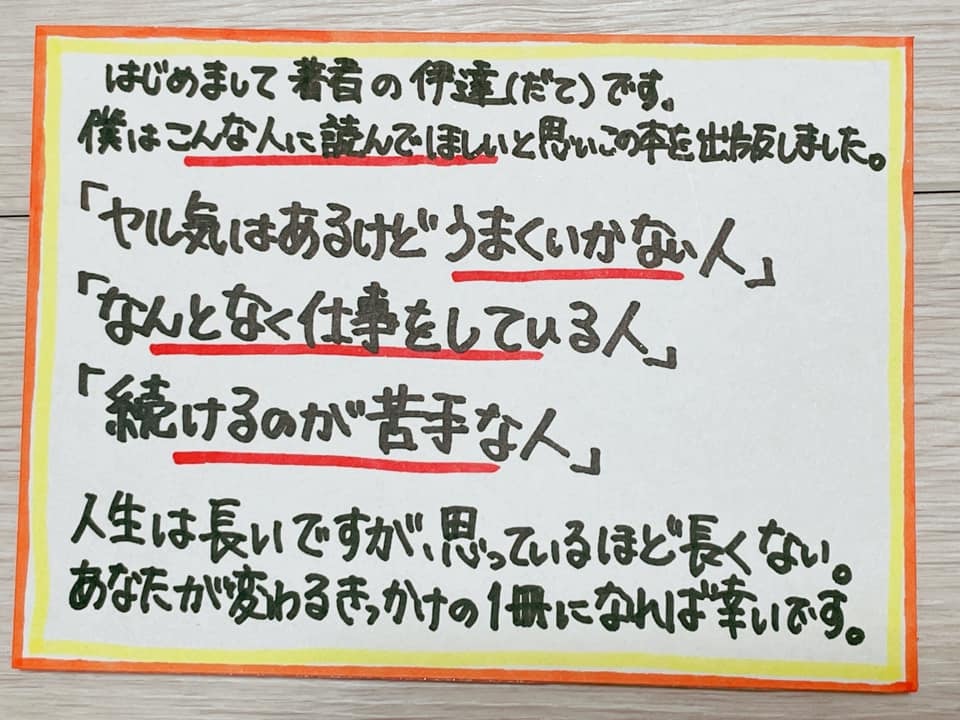 はじめまして著者の伊達(だて)です。
僕はこんな人に読んでほしいと思いこの本を出版しました。
「ヤル気はあるけどうまくいかない人」
「なんとなく仕事をしている人」
「続けるのが苦手な人」
人生は長いですが、思っているほど長くない。
あなたが変わるきっかけの1冊になれば幸いです。